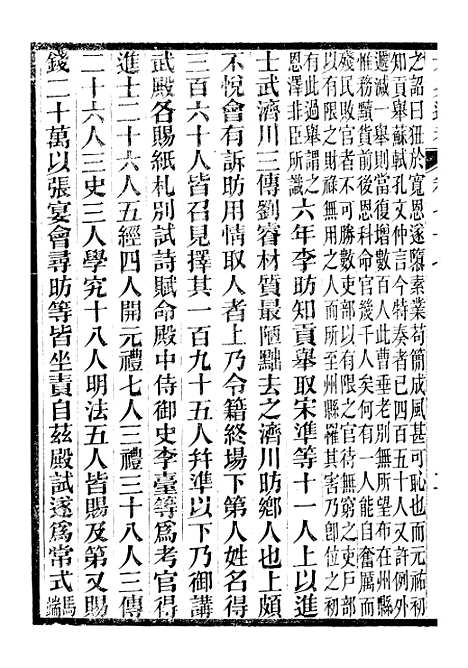 之詔曰狃於寬恩遂隳素業苟簡成風甚可恥也而元祐初
知貢舉蘇軾孔文仲言今特奏者已四百五十人又許例外
遞減一舉則當復增數百人此曹垂老別無所望布在州縣
惟務黷貨前後恩科命官幾千人矣何有一人能自奮厲而
殘民敗官者不可勝數以有限之官待無窮之吏戶部
以有限之財祿無用之人而所至州縣罹其害乃卽位
有此過舉謂之
恩澤非臣所識
六年李昉知貢舉取宋準等十一人上以進
士武濟川三傳劉睿材質最陋黜去之濟川昉鄉人也上頗
不悅會有訴昉用情取人者上乃令籍終場下第人姓名得
三百六十人皆召見擇其一百九十五人并準以下乃御講
武殿各賜紙札別試詩賦命殿中侍御史李瑩等爲考官得
進士二十六人五經四人開元禮七人三禮三十八人三傳
二十六人三史三人學究十八人明法五人皆賜及第又賜
錢二十萬以張宴會尋昉等皆坐責自茲殿試遂爲常式
馬端